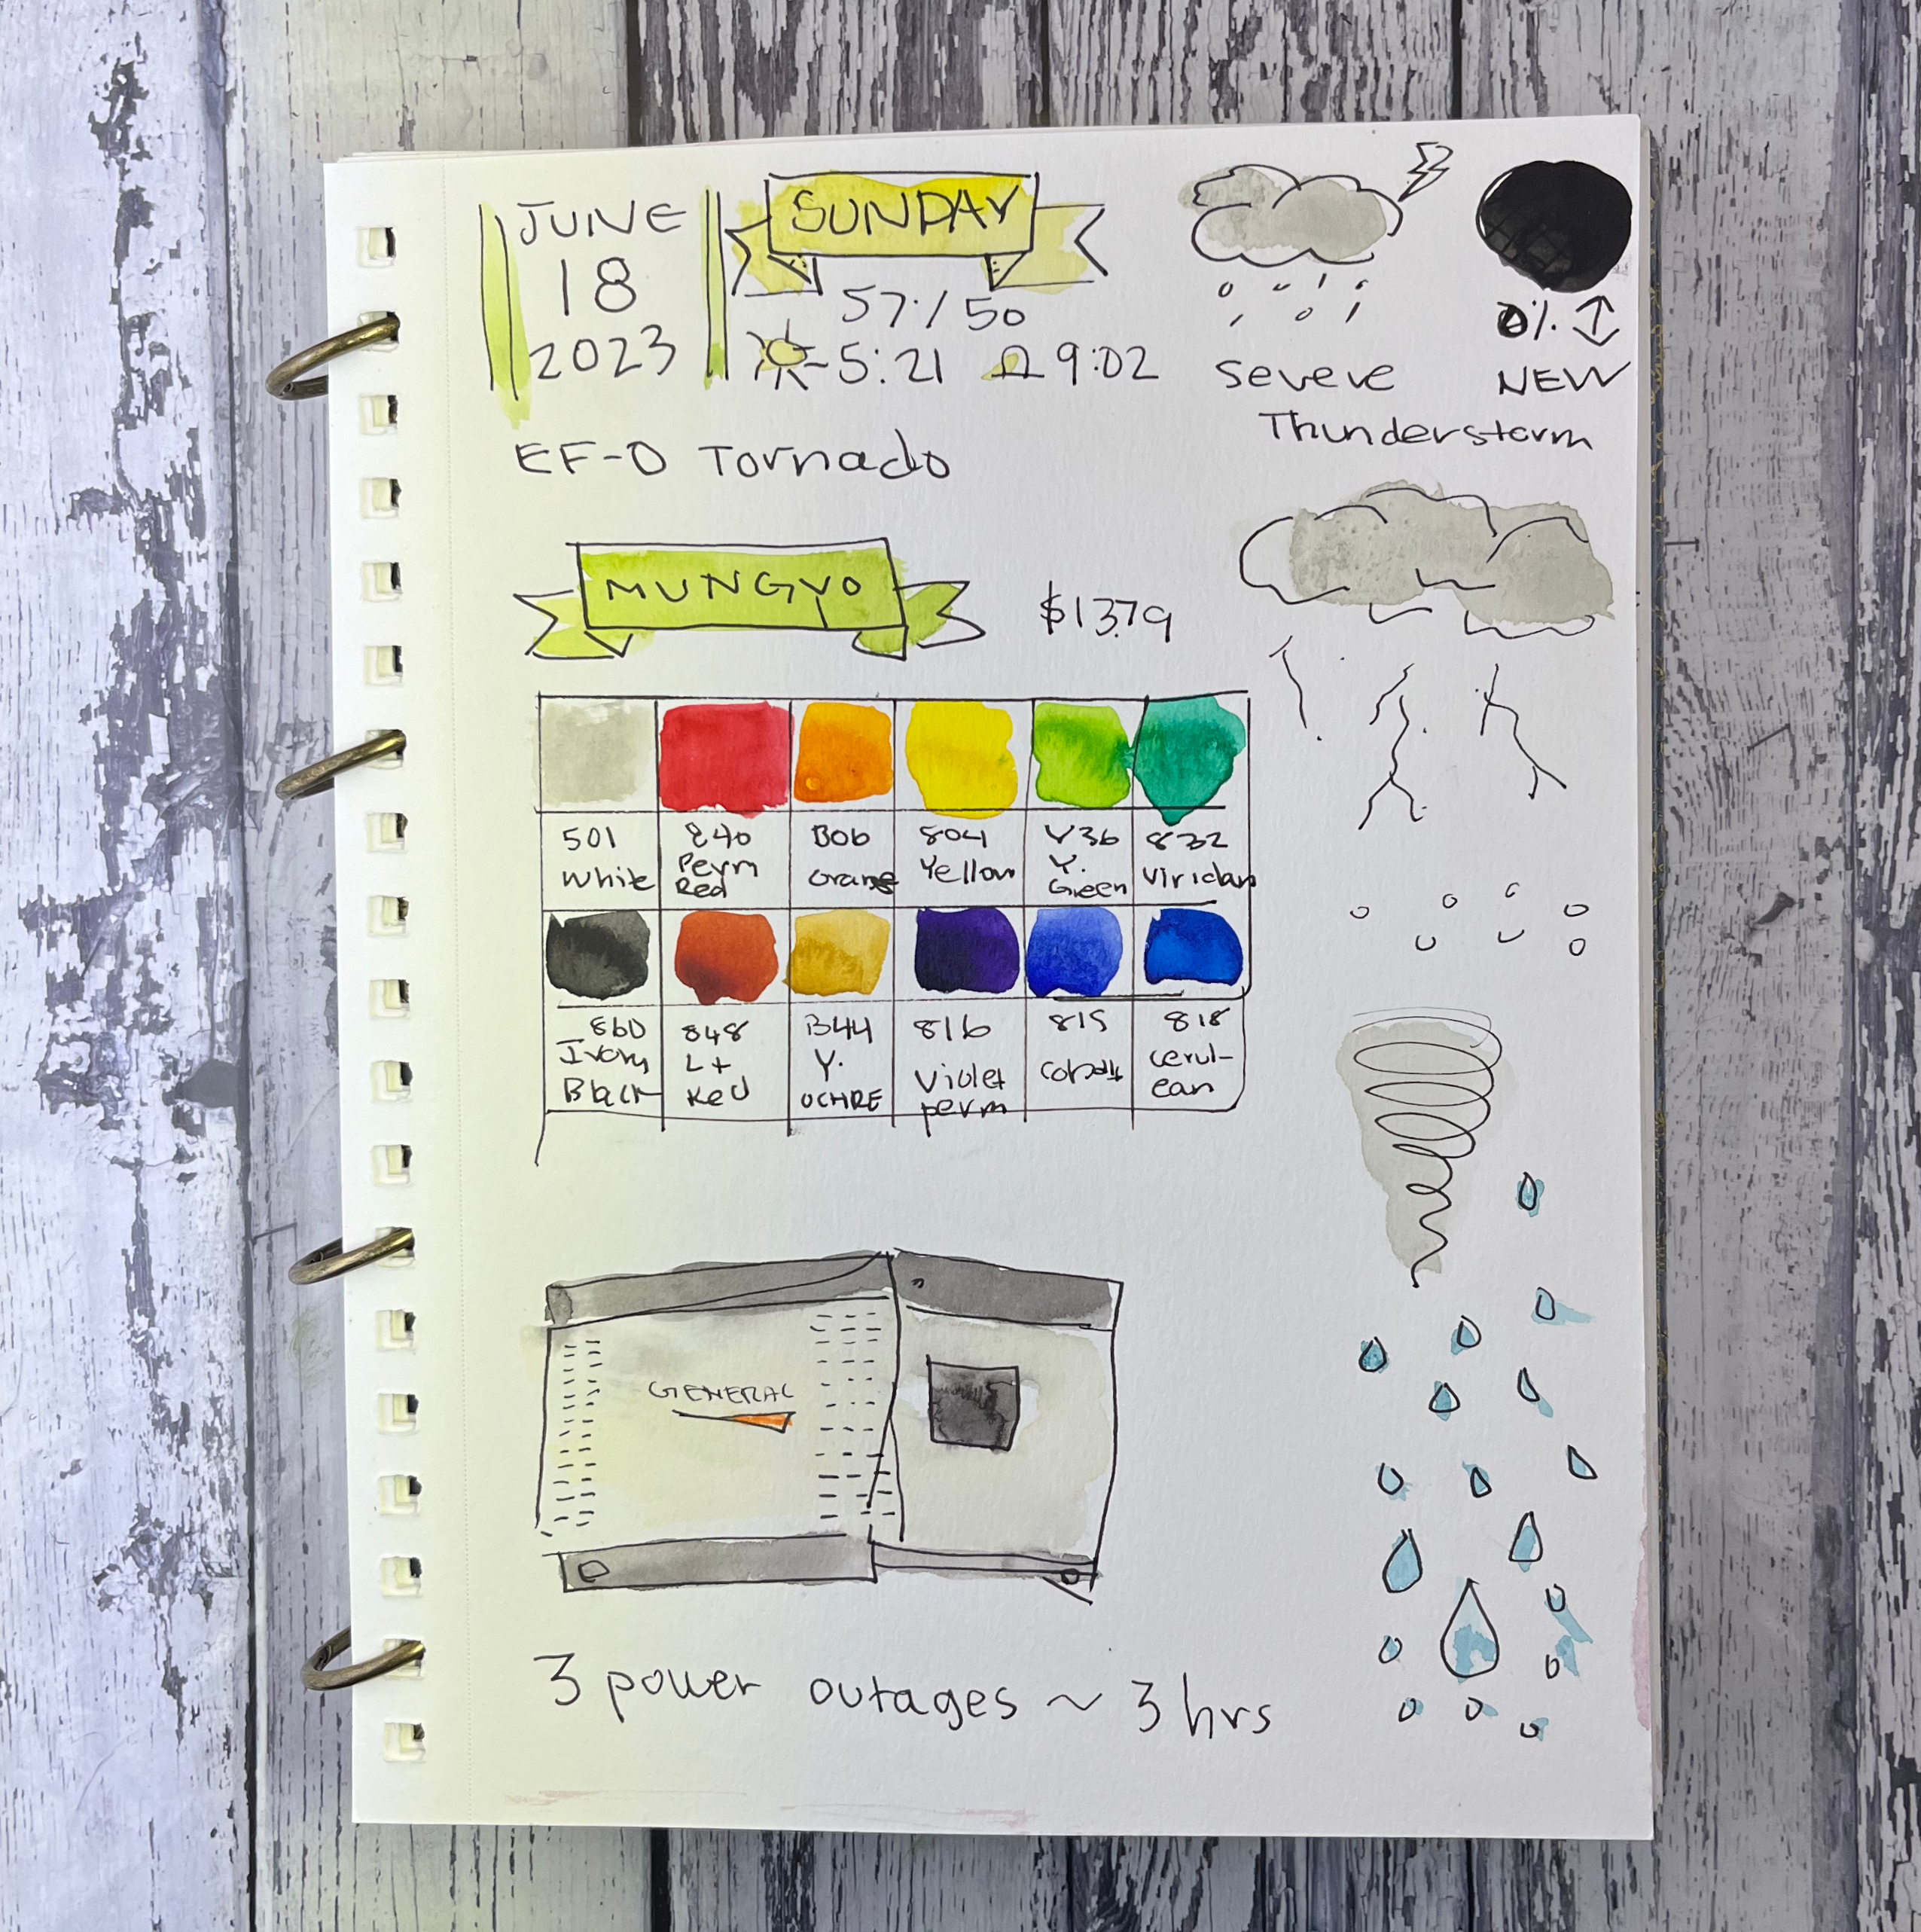 JUNE
18
2023
SUNDAY
57 / 50
5:21 9:02
severe
Thunderstorm
0%
NEW
EF-0 Tornado
MUNGYO
$13.79
501 White
840 Perm Red
806 Orange
804 Yellow
Y. Green
832 Viridan
860 Ivory Black
848 Lt Red
844 Y. OCHRE
816 Violet perm
815 Cobalt
818 Cerul-ean
GENERAC
3 power outages ~ 3 hrs